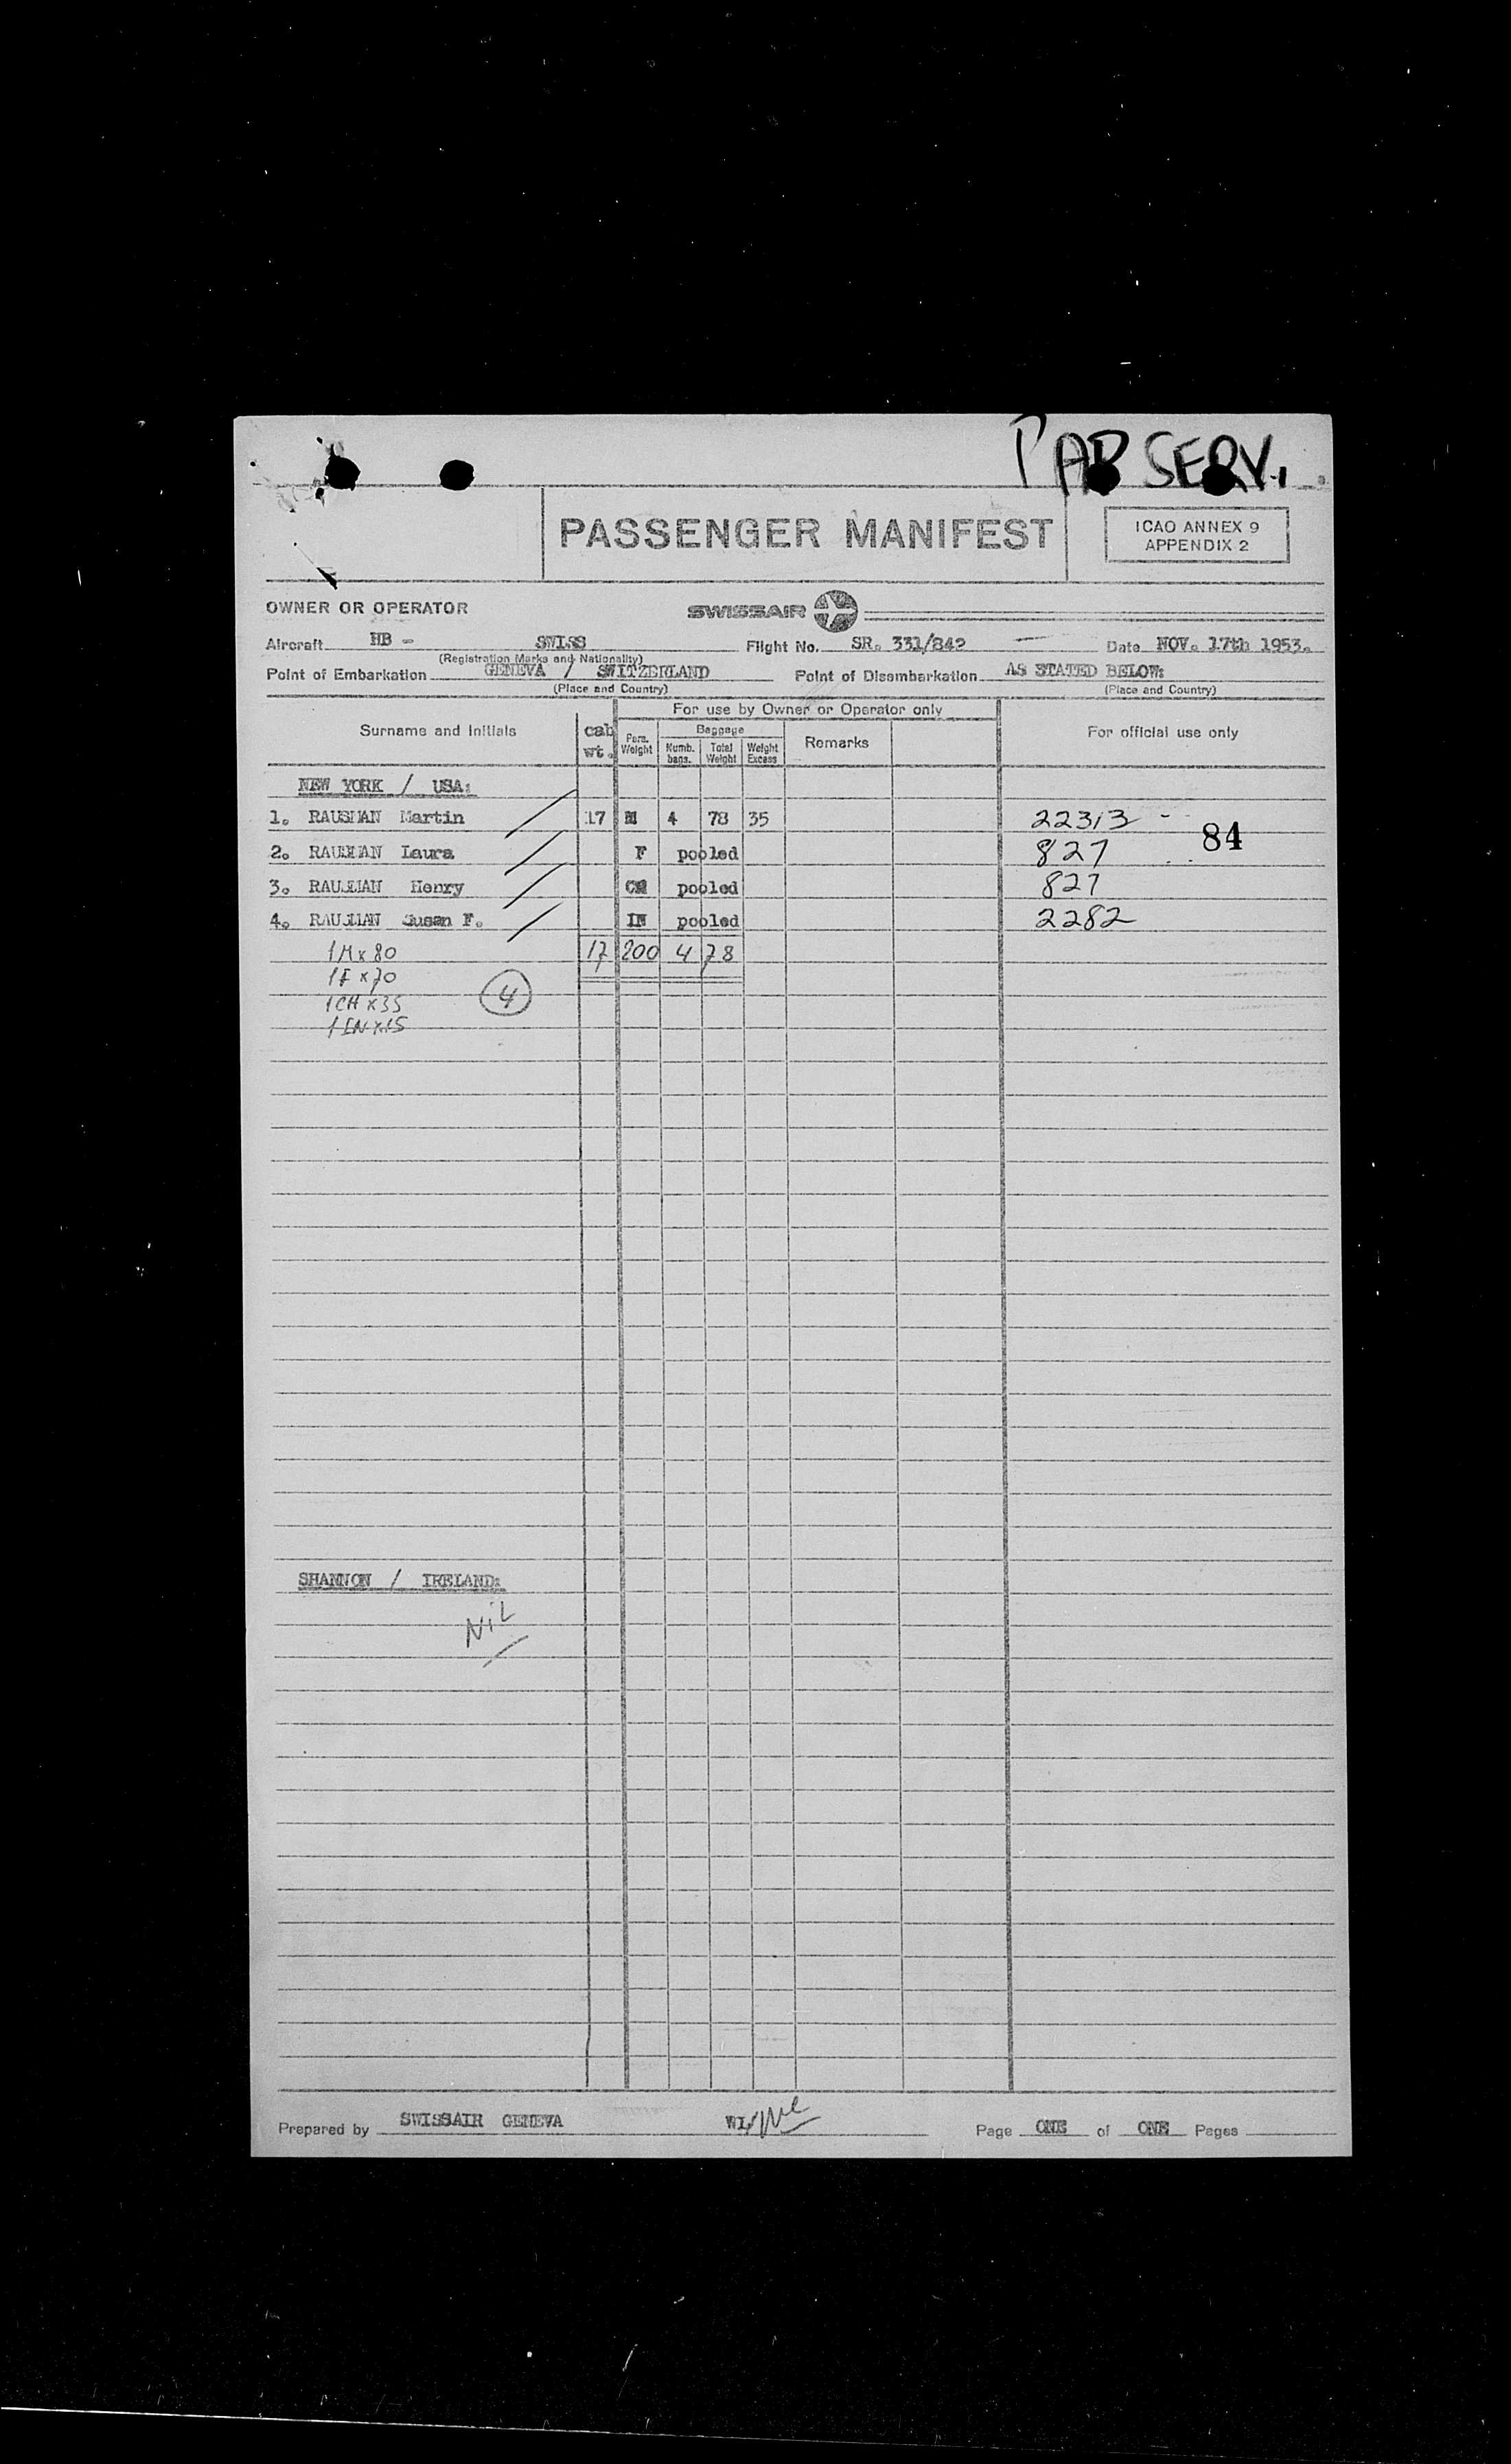 PAP SERV.
PASSENGER MANIFEST
ICAO ANNEX 9
APPENDIX 2
OWNER OR OPERATOR
SWISSAIR
Aircraft HB - SWISS Flight No. SR. 331/842 Date NOV. 17th 1953.
(Registration Marks and Nationality)
Point of Embarkation GENEVA / SWITZERLAND Point of Disembarkation AS STATED BELOW:
(Place and Country) (Place and Country)
For use by Owner or Operator only
Surname and Initials cab wt. Pers. Weight Baggage Numb. bags. Total Weight Weight Excess Remarks For official use only
NEW YORK / USA:
1. Martin 17 M 4 78 35 22313 -
84
2. Laura F pooled 827
3. Henry CH pooled 827
4. Susan F. IN pooled 2282
1M x 80 17 200 4 78
1F x 70
1CH x 35 4
1IN x 15
SHANNON / IRELAND:
NiL
Prepared by SWISSAIR GENEVA Page ONE of ONE Pages